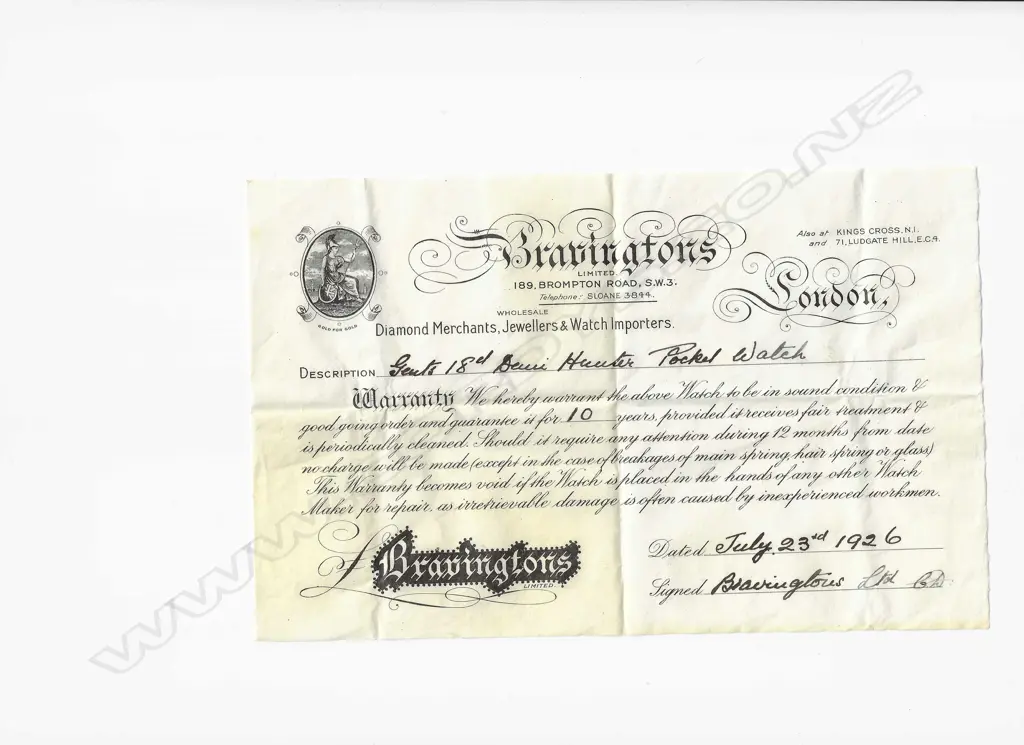 Bravingtons
LIMITED.
189, BROMPTON ROAD, S.W.3.
Telephone: SLOANE 3844.
Also at KINGS CROSS, N.1.
and 71, LUDGATE HILL, E.C.4.
London,
GOLD FOR GOLD
WHOLESALE
Diamond Merchants, Jewellers & Watch Importers.
DESCRIPTION Gents 18ct Demi Hunter Pocket Watch
Warranty We hereby warrant the above Watch to be in sound condition &
good going order and guarantee it for 10 years, provided it receives fair treatment &
is periodically cleaned. Should it require any attention during 12 months from date
no charge will be made (except in the case of breakages of main spring, hair spring or glass)
This Warranty becomes void if the Watch is placed in the hands of any other Watch
Maker for repair, as irretrievable damage is often caused by inexperienced workmen.
Dated July 23rd 1926
Signed Bravingtons Ltd
for Bravingtons
LIMITED.